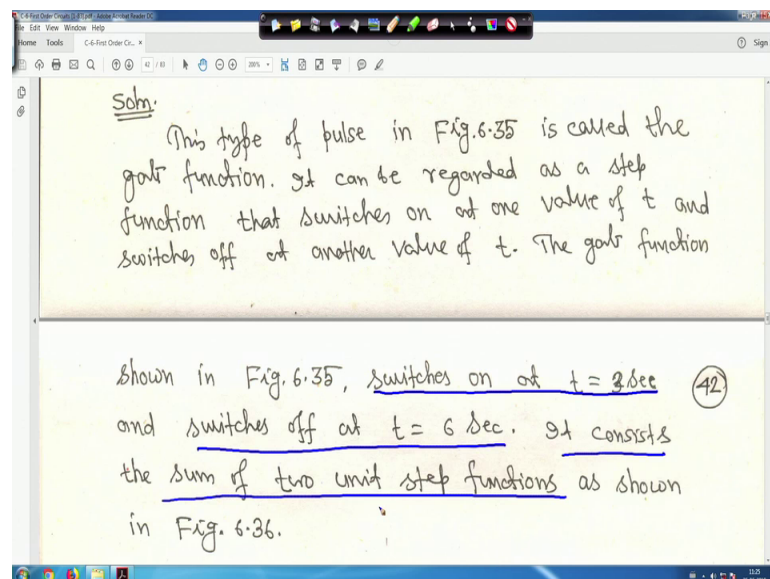 C-6-First Order Circuits [1-83].pdf - Adobe Acrobat Reader DC
File Edit View Window Help
Home Tools C-6-First Order Cir... × Sign
42 / 83 200%
Soln.
This type of pulse in Fig.6.35 is called the
gate function. It can be regarded as a step
function that switches on at one value of t and
switches off at another value of t. The gate function
shown in Fig. 6.35, switches on at t = 3 Sec 42
and switches off at t = 6 Sec. It consists
the sum of two unit step functions as shown
in Fig. 6.36.
11:25